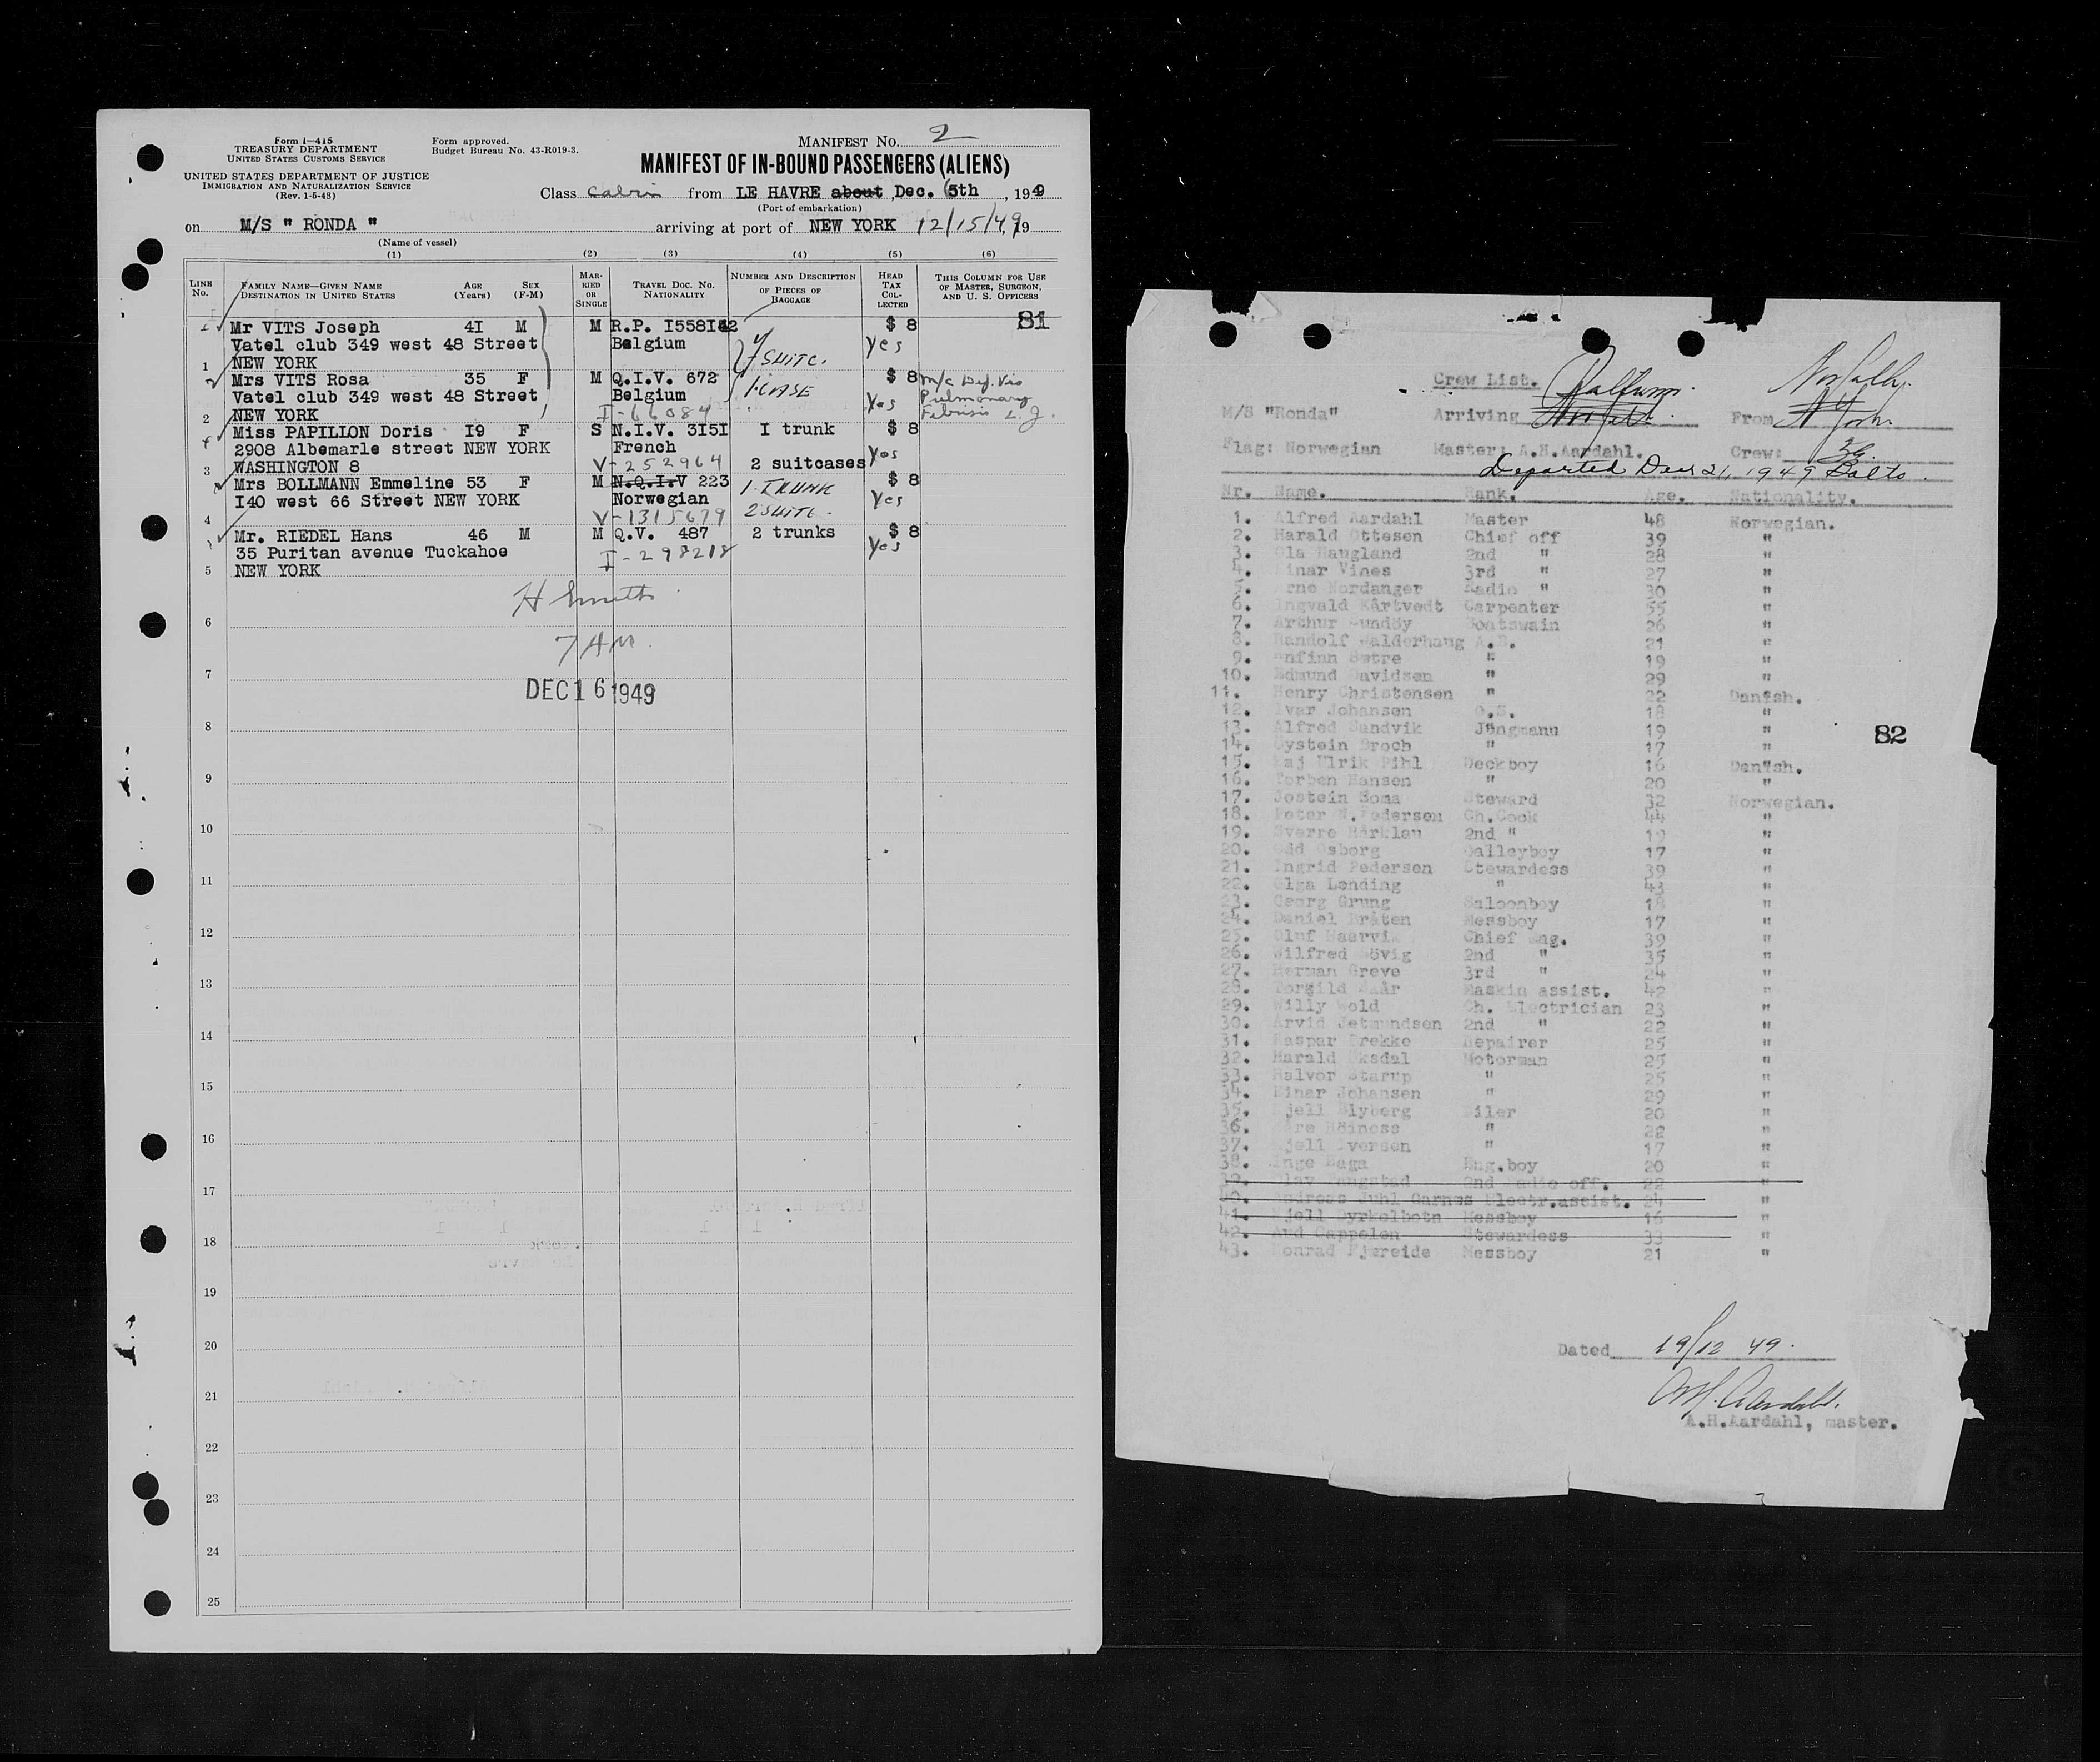 Form I—415
TREASURY DEPARTMENT
UNITED STATES CUSTOMS SERVICE
UNITED STATES DEPARTMENT OF JUSTICE
IMMIGRATION AND NATURALIZATION SERVICE
(Rev. 1-5-48)
Form approved.
Budget Bureau No. 43-R019-3.
MANIFEST No. 2
MANIFEST OF IN-BOUND PASSENGERS (ALIENS)
Class Cabin from LE HAVRE about, Dec. 6th, 1949
(Port of embarkation)
on M/S " RONDA " arriving at port of NEW YORK 12/15/49, 19
(Name of vessel)
(1) (2) (3) (4) (5) (6)
LINE No. FAMILY NAME—GIVEN NAME DESTINATION IN UNITED STATES AGE (Years) SEX (F-M) MARRIED OR SINGLE TRAVEL DOC. NO. NATIONALITY NUMBER AND DESCRIPTION OF PIECES OF BAGGAGE HEAD TAX COLLECTED THIS COLUMN FOR USE OF MASTER, SURGEON, AND U. S. OFFICERS
81
Mr VITS Joseph 4I M M R.P. I558I42 $ 8
Vatel club 349 west 48 Street Belgium Yes
1 NEW YORK 7 SUITC.
Mrs VITS Rosa 35 F M Q.I.V. 672 1.CASE $ 8 m/c Def. Vis
Vatel club 349 west 48 Street Belgium Yes Pulmonary
2 NEW YORK I-66084 Fibrisis L.J.
Miss PAPILLON Doris I9 F S N.I.V. 3I5I I trunk $ 8
2908 Albemarle street NEW YORK French Yes
3 WASHINGTON 8 V-252964 2 suitcases
Mrs BOLLMANN Emmeline 53 F M N.Q.I.V 223 1-TRUNK $ 8
I40 west 66 Street NEW YORK Norwegian Yes
4 V-1315679 2 SUITC.
Mr. RIEDEL Hans 46 M M Q.V. 487 2 trunks $ 8
35 Puritan avenue Tuckahoe Yes
5 NEW YORK I-298218
H Smith
6
7 AM.
7
DEC 16 1949
8
9
10
11
12
13
14
15
16
17
18
19
20
21
22
23
24
25
Crew List. Norfolk.
M/S "Ronda" Arriving From N York.
Flag: Norwegian Master: A.H.Aardahl. Crew: 39.
Departed Dec 21, 1949 Balto.
Nr. Name. Rank. Age. Nationality.
1. Alfred Aardahl Master 48 Norwegian.
2. Harald Ottesen Chief off 39 "
3. Ola Haugland 2nd " 28 "
4. Einar Vines 3rd " 27 "
5. Arne Nordanger Radio " 30 "
6. Ingvald Kårtvedt Carpenter 55 "
7. Arthur Sundöy Boatswain 26 "
8. Randolf Walderhaug A.B. 21 "
9. Anfinn Sætre " 19 "
10. Edmund Davidsen " 29 "
11. Henry Christensen " 22 Danish.
12. Ivar Johansen O.S. 18 "
13. Alfred Sandvik Jüngmann 19 "
14. Öystein Broch " 17 "
82
15. Kaj Ulrik Pihl Deckboy 16 Danish.
16. Torben Hansen " 20 "
17. Jostein Soma Steward 32 Norwegian.
18. Peter N.Pedersen Ch.Cook 44 "
19. Sverre Hårklau 2nd " 19 "
20. Odd Osborg Galleyboy 17 "
21. Ingrid Pedersen Stewardess 39 "
22. Olga Lending " 43 "
23. Georg Grung Saloonboy 18 "
24. Daniel Bråten Messboy 17 "
25. Oluf Haarvik Chief Eng. 39 "
26. Wilfred Hövig 2nd " 35 "
27. Herman Greve 3rd " 24 "
28. Torgild Skår Maskin assist. 42 "
29. Willy Wold Ch. Electrician 23 "
30. Arvid Jetmundsen 2nd " 22 "
31. Kaspar Brekke Repairer 25 "
32. Harald Eksdal Motorman 25 "
33. Halvor Starup " 25 "
34. Einar Johansen " 29 "
35. Kjell Blyberg Oiler 20 "
36. Kåre Höiness " 22 "
37. Kjell Iversen " 17 "
38. Inge Haga Eng.boy 20 "
39. Olav Tangstad 2nd radio off. 22
40. Andreas Juhl Garnes Electr.assist. 24 "
41. Kjell Dyrkolbotn Messboy 16 "
42. Aud Cappelen Stewardess 33 "
43. Konrad Fjereide Messboy 21 "
Dated 19/12 49.
A.H.Aardahl.
A.H.Aardahl, master.